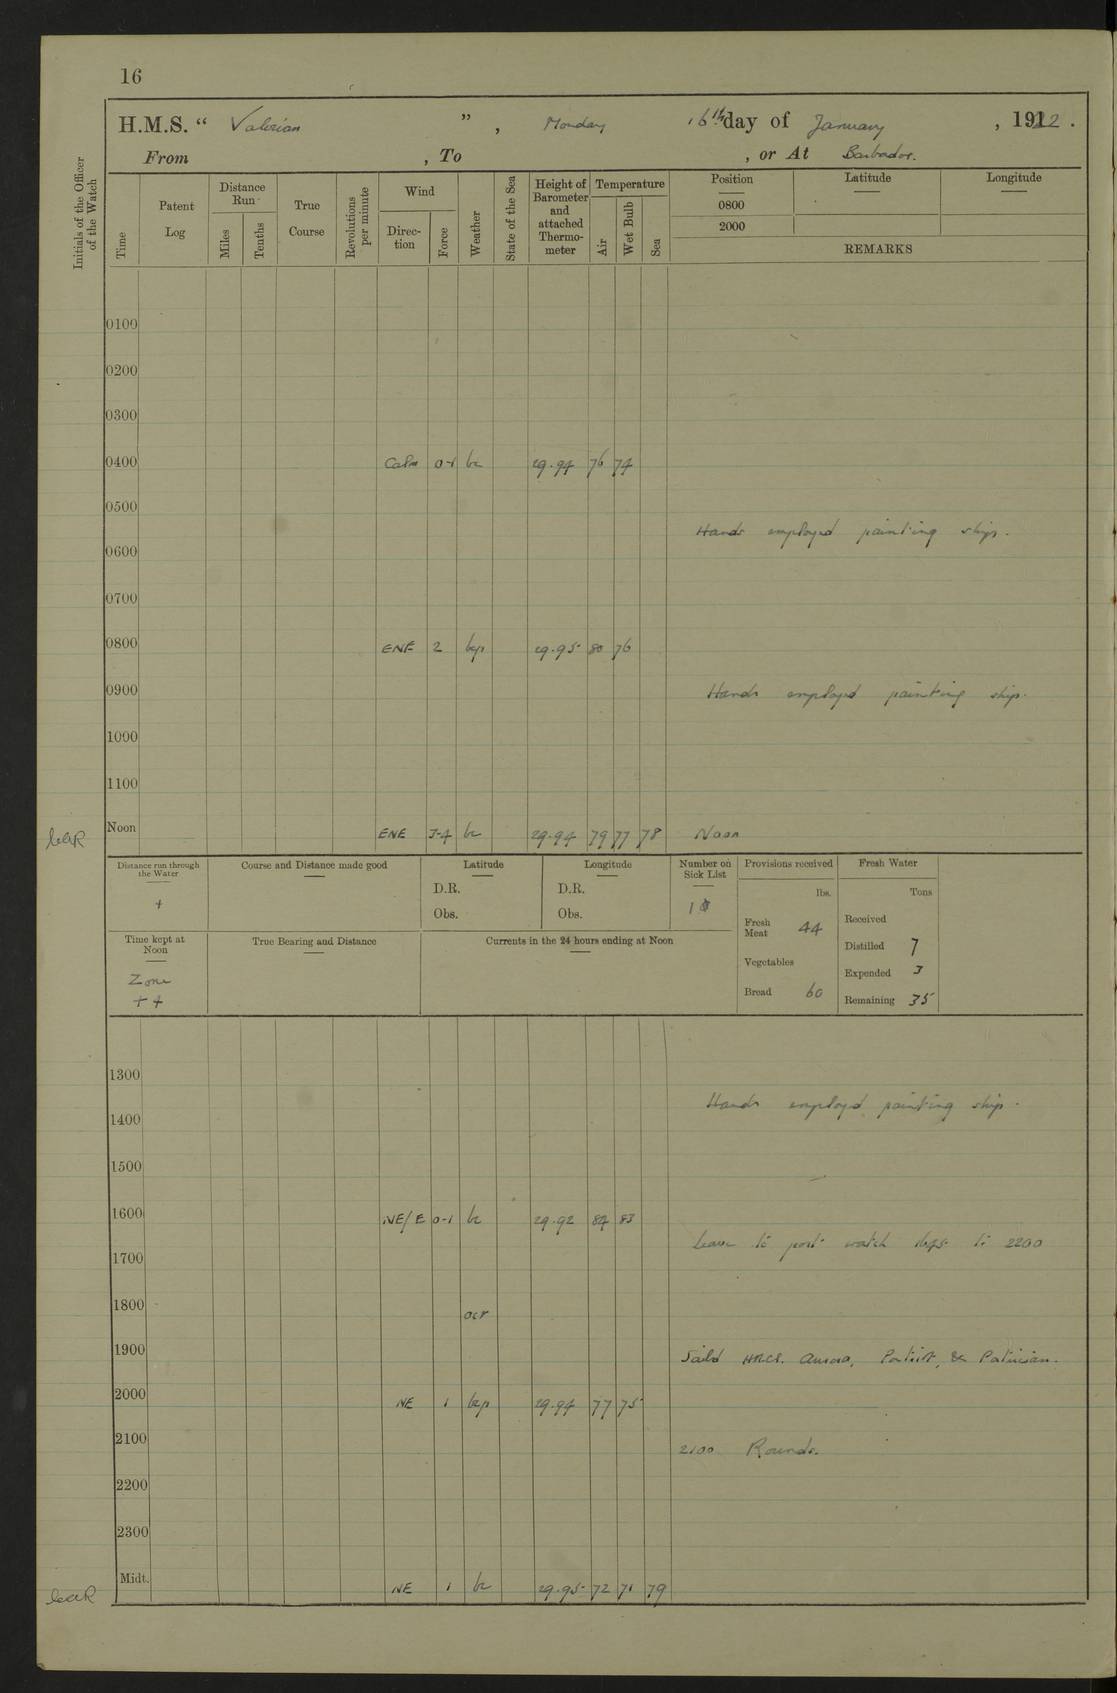 16
H.M.S. “ Valerian ” , Monday 16th day of January , 1922 .
From , To , or At Barbados.
Initials of the Officer of the Watch
Time
Patent Log
Distance Run
Miles
Tenths
True Course
Revolutions per minute
Wind
Direction
Force
Weather
State of the Sea
Height of Barometer and attached Thermometer
Temperature
Air
Wet Bulb
Sea
Position Latitude Longitude
0800
2000
REMARKS
0100
0200
0300
0400 Calm 0-1 bc 29.94 76 74
0500
Hands employed painting ship.
0600
0700
0800 ENE 2 bcp 29.95 80 76
0900 Hands employed painting ship.
1000
1100
Noon ENE 3-4 bc 29.94 79 77 78 Noon
Distance run through the Water
+
Course and Distance made good
Latitude
D.R.
Obs.
Longitude
D.R.
Obs.
Number on Sick List
1
Provisions received
lbs.
Fresh Meat 44
Vegetables
Bread 60
Fresh Water
Tons
Received
Distilled 7
Expended 3
Remaining 35
Time kept at Noon
Zone
+ 4
True Bearing and Distance
Currents in the 24 hours ending at Noon
1300
Hands employed painting ship.
1400
1500
1600 NE/E 0-1 bc 29.92 84 83
Leave to port watch to 2200
1700
1800 ocr
1900 Sailed H.M.S. Aurora, Patriot, & Patrician.
2000 NE 1 bcp 29.94 77 75
2100 2100 Rounds.
2200
2300
Midt. NE 1 bc 29.95 72 71 79